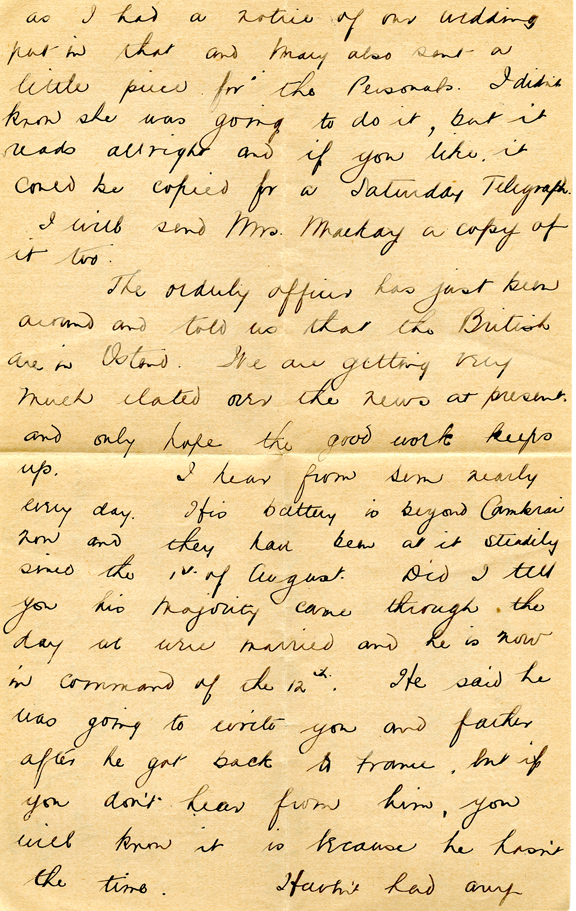 as I had a notice of our wedding
put in that and Mary also sent a
little piece for the Personals. I didn't
know she was going to do it, but it
reads allright and if you like, it
could be copied for a Saturday Telegraph.
I will send Mrs. Mackay a copy of
it too.
The orderly officer has just been
around and told us that the British
are in Ostend. We are getting very
much elated over the news at present.
and only hope the good work keeps
up. I hear from nearly
every day. His battery is beyond Cambrai
now and they have been at it steadily
since the 1st of August. Did I tell
you his majority came through the
day we were married and he is now
in command of the 12th. He said he
was going to write you and father
after he got back to France, but if
you don't hear from him, you
will know it is because he hasn't
the time. Havn't had any